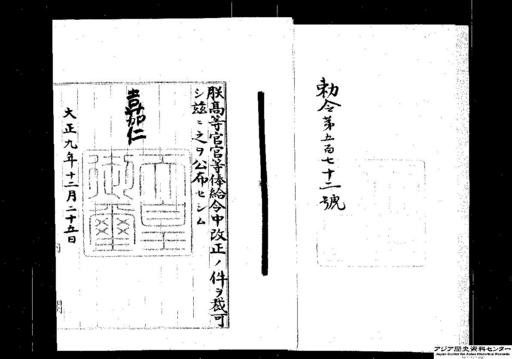 勅令第五百七十二號
朕高等官官等俸給令中改正ノ件ヲ裁可
シ茲ニ之ヲ公布セシム
嘉仁
天皇御璽
大正九年十二月二十五日
アジア歴史資料センター
Japan Center for Asian Historical Records